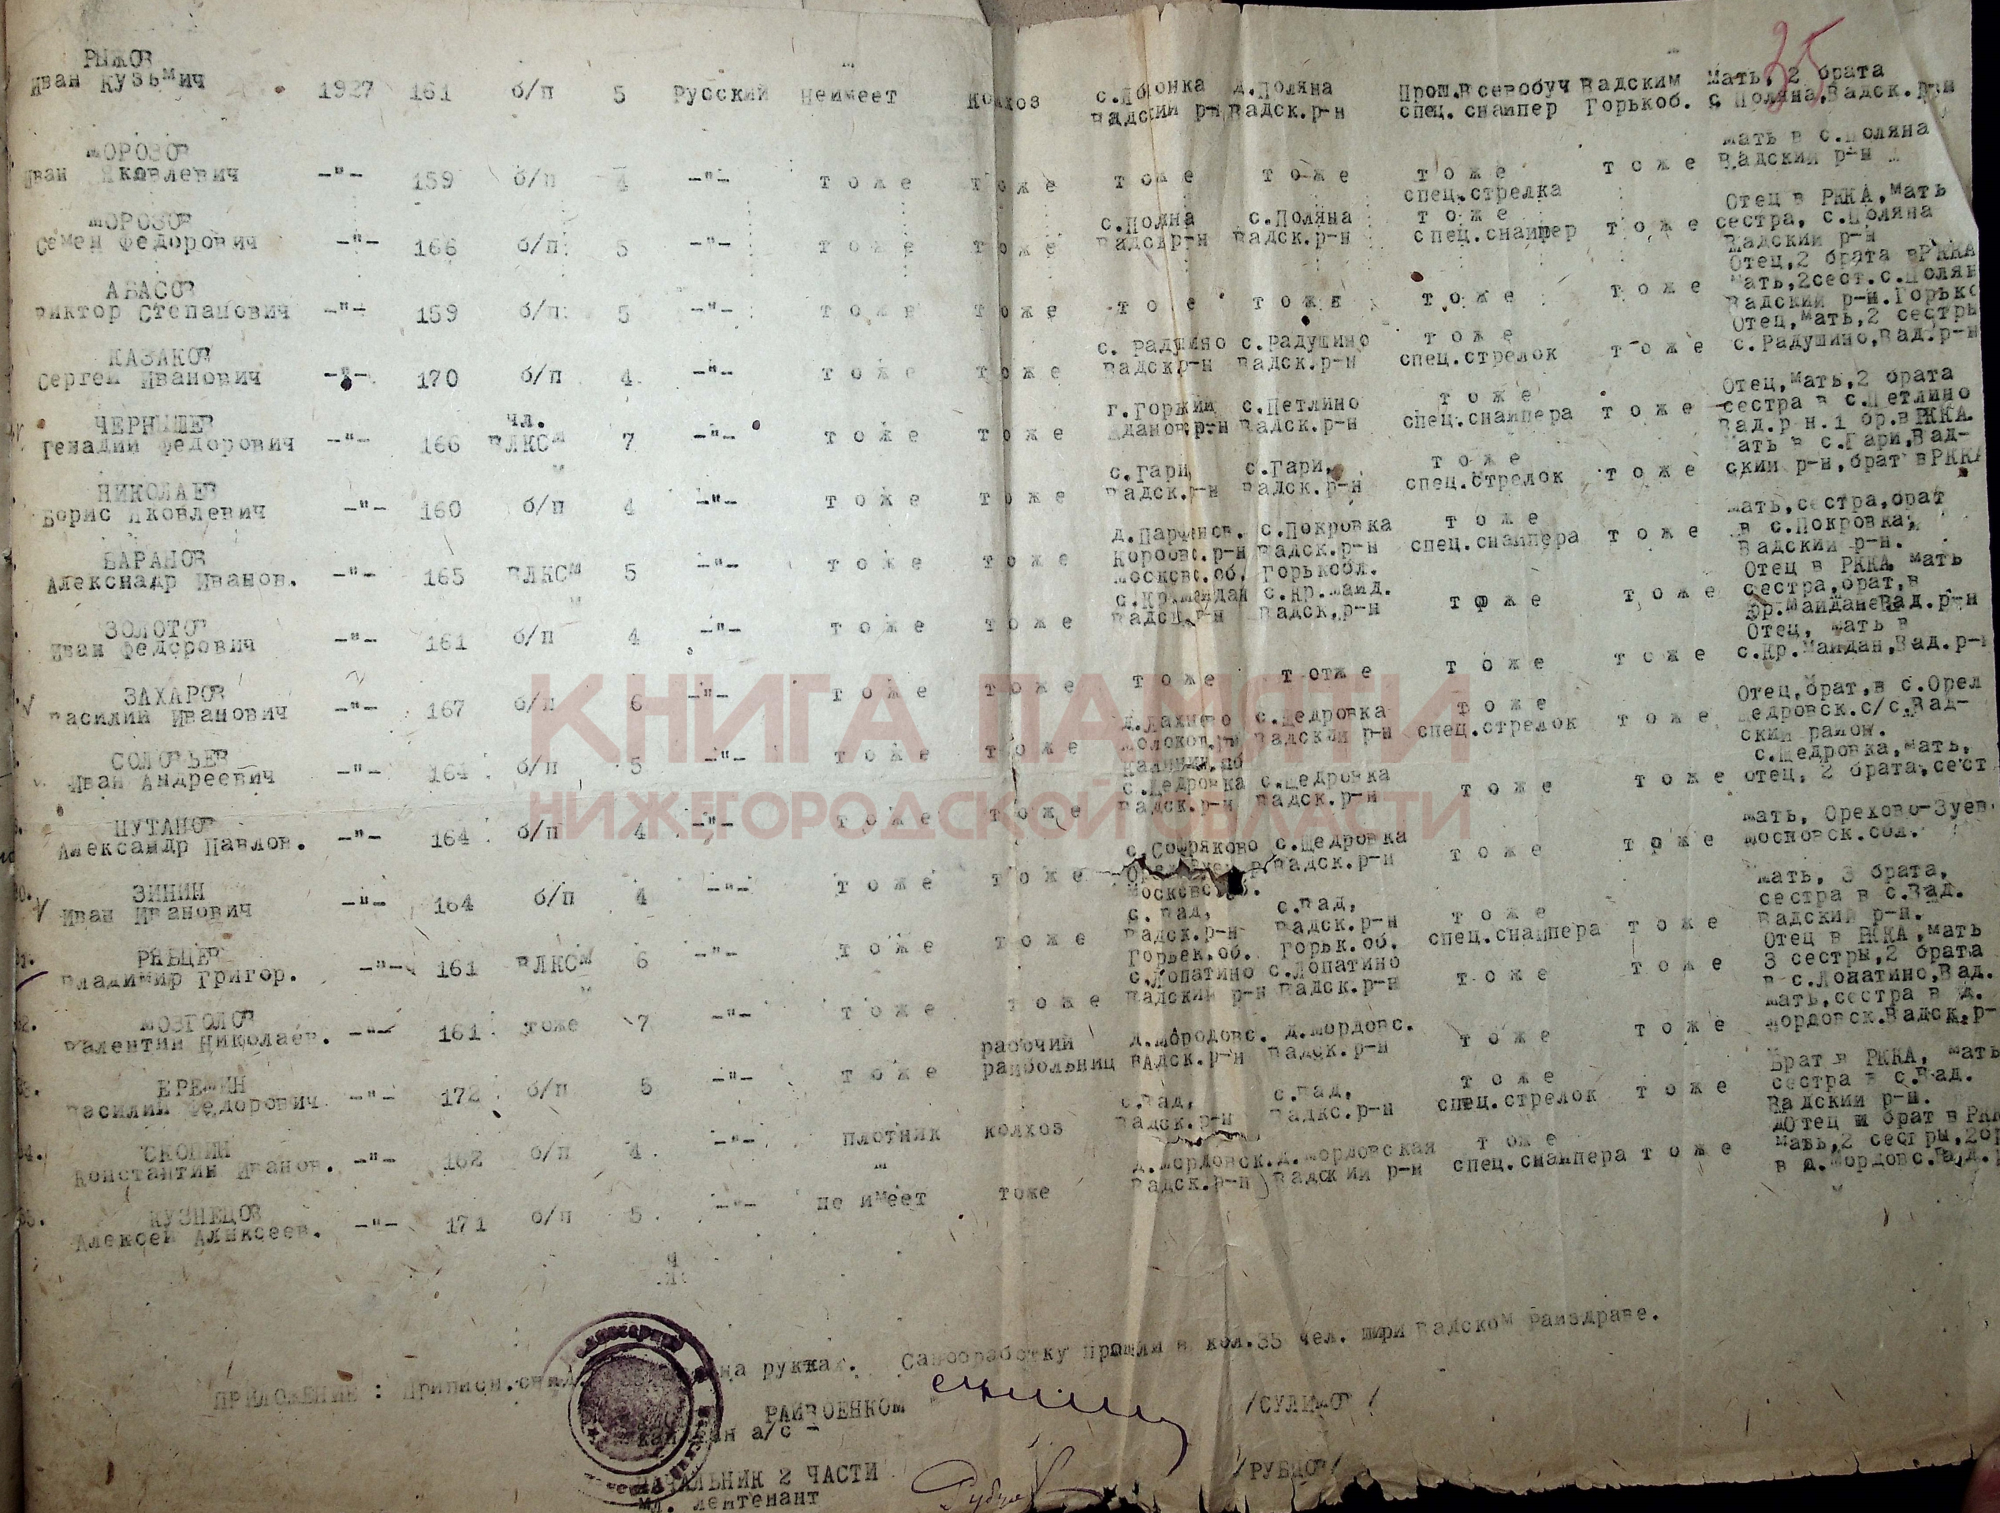 35
РЫЖОВ
Иван Кузьмич 1927 161 б/п 5 Русский Неимеет Колхоз с.Лопонка д.Поляна Прош.Всевобуч Вадским Мать, 2 брата
Вадский р-н Вадск.р-н спец. снайпер Горькоб. с Поляна,Вадск.р-н
МОРОЗОВ
Иван Яковлевич -"- 159 б/п 4 -"- тоже тоже тоже тоже тоже тоже Мать в с.Поляна
спец.стрелка Вадский р-н
МОРОЗОВ
Семен Федорович -"- 166 б/п 5 -"- тоже тоже с.Поляна с.Поляна тоже тоже Отец в РККА,мать
Вадск.р-н Вадск.р-н спец.снайпер сестра, с.Поляна
Вадский р-н
АБАСОВ
Виктор Степанович -"- 159 б/п 5 -"- тоже тоже тое тоже тоже тоже Отец,2 брата вРККА
Мать,2сест.с.Полян
Вадский р-н.Горько
КАЗАКОВ
Сергей Иванович -"- 170 б/п 4 -"- тоже тоже с. Радушино с.Радушино тоже тоже Отец,мать,2 сестры
Вадск.р-н Вадск.р-н спец.стрелок с.Радушино,Вад.р-н
ЧЕРНЫШЕВ
Генадий Федорович -"- 166 чл. ВЛКСМ 7 -"- тоже тоже г.Горький с.Петлино тоже тоже Отец,мать,2 брата
Жданов.р-н Вадск.р-н спец.снайпера сестра в с.Петлино
Вад.р н.1 бр.в РККА
НИКОЛАЕВ
Борис Яковлевич -"- 160 б/п 4 -"- тоже тоже с.Гари с.Гари, тоже тоже Мать в с.Гари,Вад-
Вадск.р-н Вадск.р-н спец.стрелок ский р-н,брат вРККА
БАРАНОВ
Алекснадр Иванов. -"- 165 ВЛКСМ 5 -"- тоже тоже д.Парфенов. с.Покровка тоже тоже Мать,сестра,брат
Коробов.р-н Вадск.р-н спец.снайпера в с.Покровка,
Московс.об. Горькобл. Вадский р-н.
ЗОЛОТОВ
Иван Федорович -"- 161 б/п 4 -"- тоже тоже с.Кр.майдан с.Кр.майд. тоже тоже Отец в РККА мать
Вадск.р-н Вадск.р-н сестра,брат,в
Кр.МайданеВад.р-н
ЗАХАРОВ
Василий Иванович -"- 167 б/п 6 -"- тоже тоже тоже тотже тоже тоже Отец, мать в
с.Кр.Майдан,Вад.р-н
СОЛОВЬЕВ
Иван Андреевич -"- 164 б/п 5 -"- тоже тоже с.Щедровка тоже тоже Отец,брат,в с.Орел
Вадский р-н спец.стрелок Щедровск.с/с.Вад-
ский район.
ПУТАНОВ
Александр Павлов. -"- 164 б/п 4 -"- тоже тоже с.Щедровка с.Щедровка тоже тоже с.Щедровка,мать,
Вадск.р-н Вадск.р-н отец, 2 брата,сест
30. ЗИНИН
Иван Иванович -"- 164 б/п 4 -"- тоже тоже с.Собряково с.Щедровка тоже тоже Мать, Орехово-Зуев.
Вадск.р-н Московск.обл.
31. РЯБЦЕВ
Владимир Григор. -"- 161 ВЛКСМ 6 -"- тоже тоже с. Вад, с.Вад, тоже тоже Мать, 3 брата,
Вадск.р-н Вадск.р-н спец.снайпера сестра в с.Вад.
Горьек.об. Горьк.об. Вадский р-н.
32. МОЗГОЛОВ
Валентин Николаев. -"- 161 тоже 7 -"- тоже тоже с.Лопатино с.Лопатино тоже тоже Отец в РККА,мать
Вадский р-н Вадск.р-н 3 сестры,2 брата
в с.Лопатино,Вад.
33. ЕРЕМИН
Василий Федорович -"- 172 б/п 5 -"- тоже рабочий д.Мородовс. д.Мордовс. тоже тоже Мать,сестра в д.
райбольниц Вадск.р-н Вадск.р-н Мордовск.Вадск.р-
34. СКОПИН
Константин Иванов. -"- 162 б/п 4 -"- плотник колхоз с.Вад, с.Вад, тоже тоже Брат в РККА, мать
Вадск.р-н Вадкс.р-н спец.стрелок сестра в с.Вад.
Вадский р-н.
35. КУЗНЕЦОВ
Алексей Алексеев. -"- 171 б/п 5 -"- не имеет тоже д.Мордовск.д.Мордовская тоже тоже Отец и брат в РКК
Вадск.р-н Вадский р-н спец.снайпера Мать,2 сестры,2бр
в д.Мордовс.Вад.
КНИГА ПАМЯТИ
НИЖЕГОРОДСКОЙ ОБЛАСТИ
ПРИЛОЖЕНИЕ : Приписн.свид. на руках. Санобработку прошли в кол.35 чел. при Вадском Райздраве.
РАЙВОЕНКОМ
капитан а/с - /СУЛИМОВ/
НАЧАЛЬНИК 2 ЧАСТИ
мл. лейтенант /РУБЦОВ/